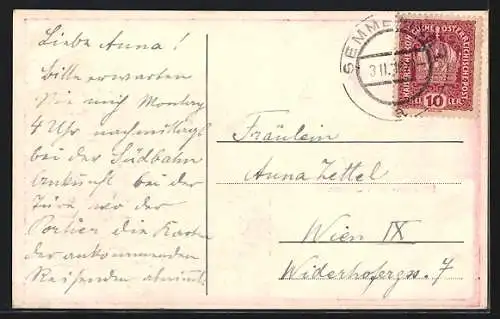 Liebe Anna!
Bitte erwarten
Sie mich Montag
4 Uhr nachmittags
bei der Südbahn
Ankunft bei der
Türe wo der
Portier die Karten
der ankommenden
Reisenden abnimmt.
SEMME
3 II.
ÖSTERREICHISCHE POST
10
Fräulein
Anna Zettel
Wien IX
Widerhoferg. 7